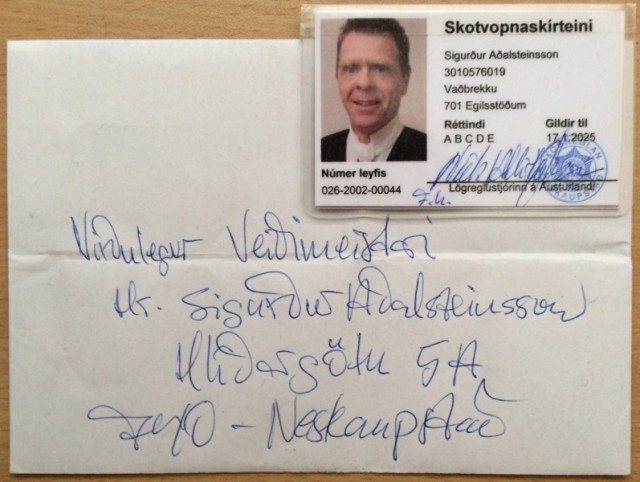 Skotvopnaskírteini
Sigurður Aðalsteinsson
3010576019
Vaðbrekku
701 Egilsstöðum
Réttindi Gildir til
A B C D E 17.1.2025
Númer leyfis
026-2002-00044
F.h.
Lögreglustjórinn á Austurlandi
Virðulegur Veiðimeistari
Hr. Sigurður Aðalsteinsson
Hlíðargötu 5A
740 - Neskaupstað